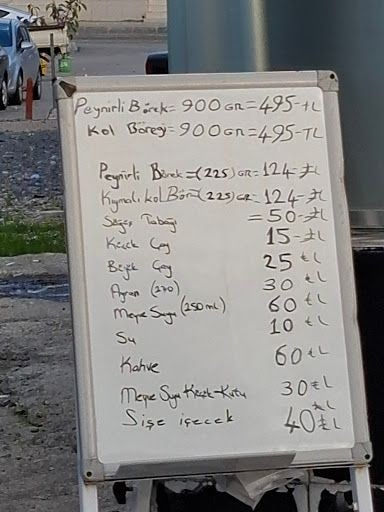 Peynirli Börek = 900 GR = 495-TL
Kol Böreği = 900 GR = 495-TL
Peynirli Börek = (225) GR = 124-TL
Kıymalı kol Bör = (225) GR = 124-TL
Söğüş Tabağı = 50-TL
Küçük Çay 15-TL
Büyük Çay 25 ₺L
Ayran (270) 30 ₺L
Meyve Suyu (250 mL) 60 ₺L
Su 10 ₺L
Kahve 60 ₺L
Meyve Suyu Küçük-Kutu 30 ₺L
Şişe içecek 40 ₺L